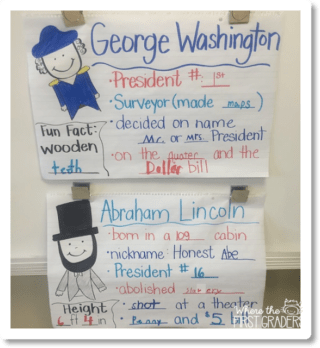 George Washington
• President # 1st
• Surveyor (made maps)
• decided on name
Mr. or Mrs. President
• on the quarter and the
Dollar bill
Fun Fact:
Wooden
teeth
Abraham Lincoln
• born in a log cabin
• nickname Honest Abe
• President # 16
• abolished slavery
• shot at a theater
• Penny and $5
Height
6 ft 4 in
Where the
FIRST GRADERS